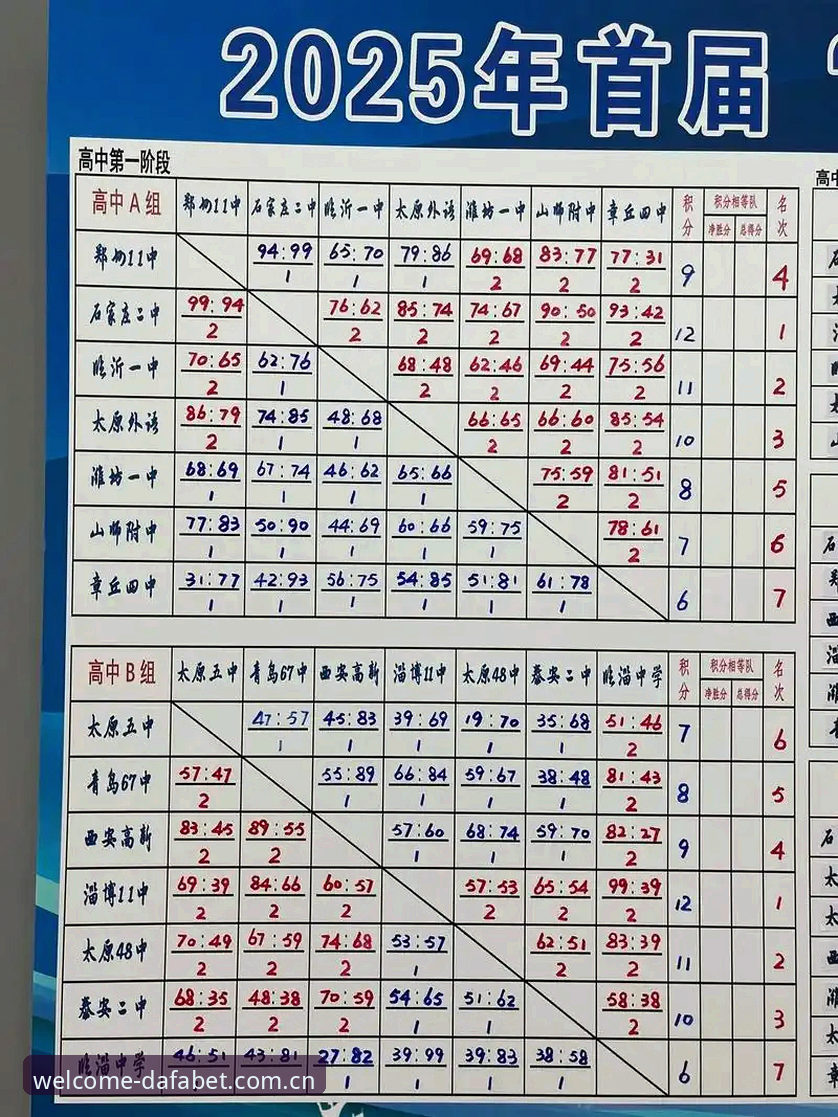 2025年首届
高中第一阶段
高中
高中A组 郑州11中 石家庄二中 临沂一中 太原外语 潍坊一中 山师附中 章丘四中 积分 积分相等队 净胜分 总得分 名次
郑州11中 94:99 1 65:70 1 79:86 1 69:68 2 83:77 2 77:31 2 9 4
石家庄二中 99:94 2 76:62 2 85:74 2 74:67 2 90:50 2 93:42 2 12 1
临沂一中 70:65 2 62:76 1 68:48 2 62:46 2 69:44 2 75:56 2 11 2
太原外语 86:79 2 74:85 1 48:68 1 66:65 2 66:60 2 85:54 2 10 3
潍坊一中 68:69 1 67:74 1 46:62 1 65:66 1 75:59 2 81:51 2 8 5
山师附中 77:83 1 50:90 1 44:69 1 60:66 1 59:75 1 78:61 2 7 6
章丘四中 31:77 1 42:93 1 56:75 1 54:85 1 51:81 1 61:78 1 6 7
高中B组 太原五中 青岛67中 西安高新 淄博11中 太原48中 泰安二中 临淄中学 积分 积分相等队 净胜分 总得分 名次
太原五中 47:57 1 45:83 1 39:69 1 19:70 1 35:68 1 51:46 2 7 6
青岛67中 57:47 2 55:89 1 66:84 1 59:67 1 38:48 1 81:43 2 8 5
西安高新 83:45 2 89:55 2 57:60 1 68:74 1 59:70 1 82:27 2 9 4
淄博11中 69:39 2 84:66 2 60:57 2 57:53 2 65:54 2 99:39 2 12 1
太原48中 70:49 2 67:59 2 74:68 2 53:57 1 62:51 2 83:39 2 11 2
泰安二中 68:35 2 48:38 2 70:59 2 54:65 1 51:62 1 58:38 2 10 3
临淄中学 46:51 43:81 27:82 1 39:99 1 39:83 1 38:58 1 6 7
welcome-dafabet.com.cn